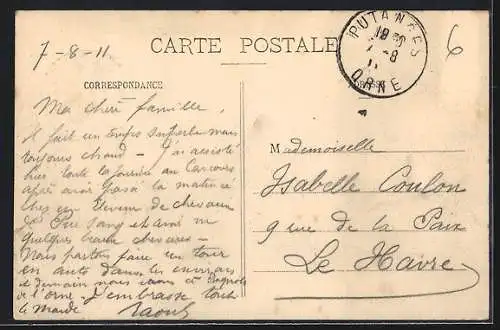 7-8-11
CARTE POSTALE
PUTANGES
18
7-8
11
ORNE
6
CORRESPONDANCE
Ma chère famille,
Il fait un temps superbe mais
toujours chaud - J'ai assisté
hier toute la journée au Concours
après avoir passé la matinée
chez un Eleveur de chevaux
de Pur Sang et admiré
quelques beaux chevaux -
Nous partons faire un tour
en auto dans les environs
et demain nous à Bagnoles
de l'orne. J'embrasse tout
le monde Raoul
Mademoiselle
Isabelle Coulon
9 rue de la Paix
Le Havre